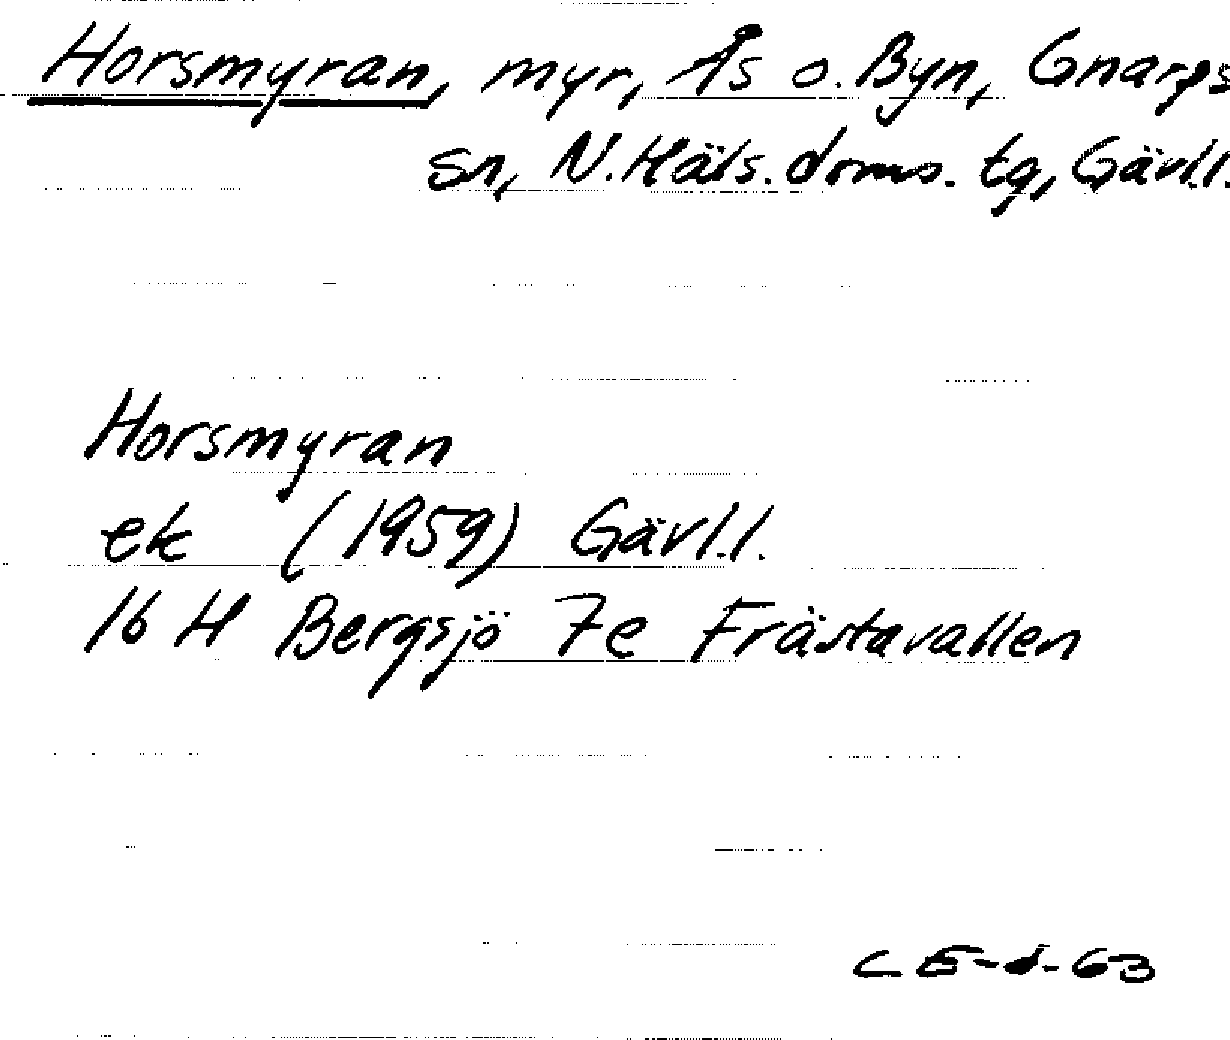 Horsmyran, myr, Ås o. Byn, Gnarps
sn, N. Häls. doms. tg, Gävl.l.
Horsmyran
ek (1959) Gävl.l.
16 H Bergsjö 7e Frästavallen